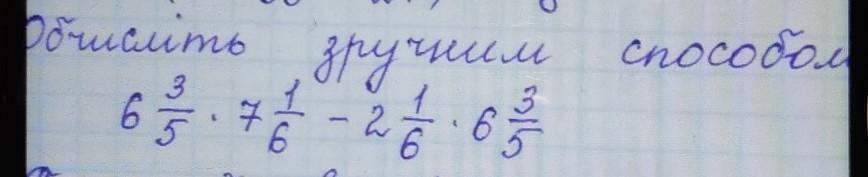 Обчисліть зручним способом
6 3/5 · 7 1/6 - 2 1/6 · 6 3/5